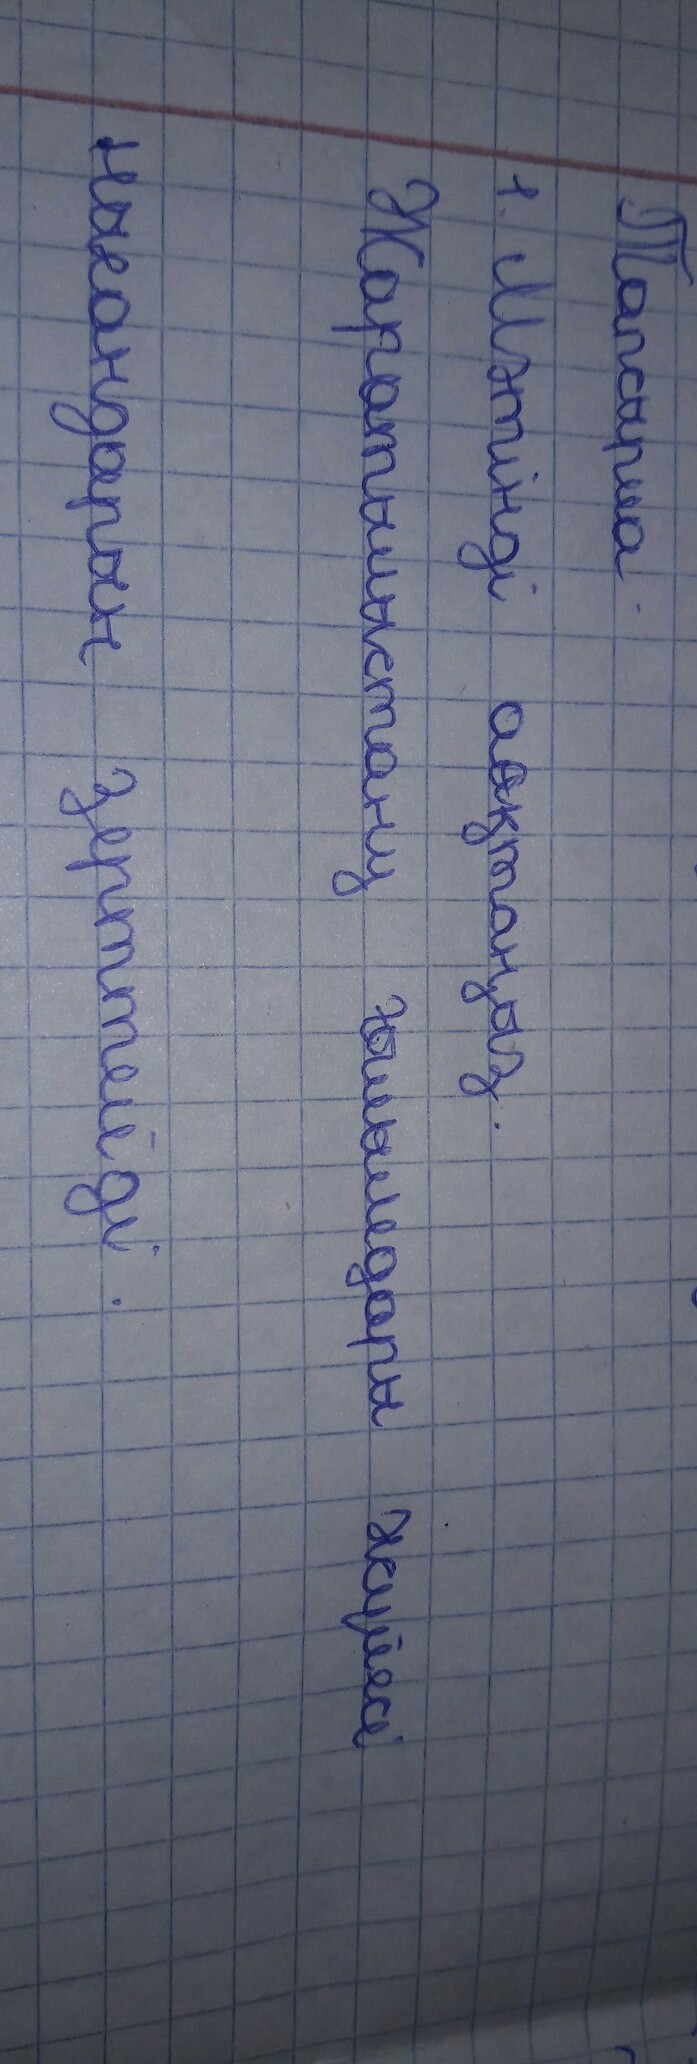 Тапсырма.
1. Мәтінді аяқтаңыз.
Жаратылыстану ғылымдары жүйесі
нысандарын зерттейді.